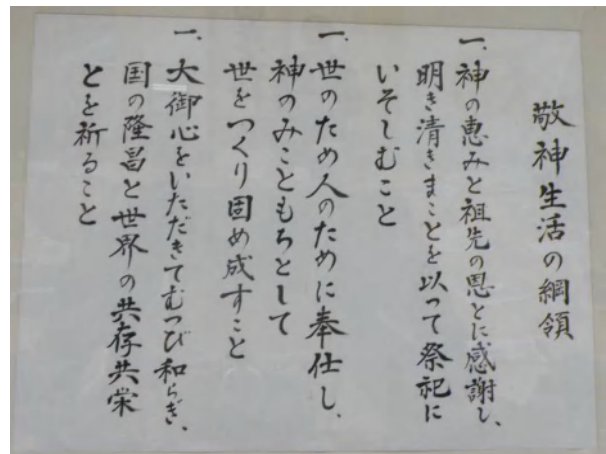 敬神生活の綱領
一、神の恵みと祖先の恩とに感謝し、
明き清きまことを以って祭祀に
いそしむこと
一、世のため人のために奉仕し、
神のみこともちとして
世をつくり固め成すこと
一、大御心をいただきてむつび和らぎ、
国の隆昌と世界の共存共栄
とを祈ること